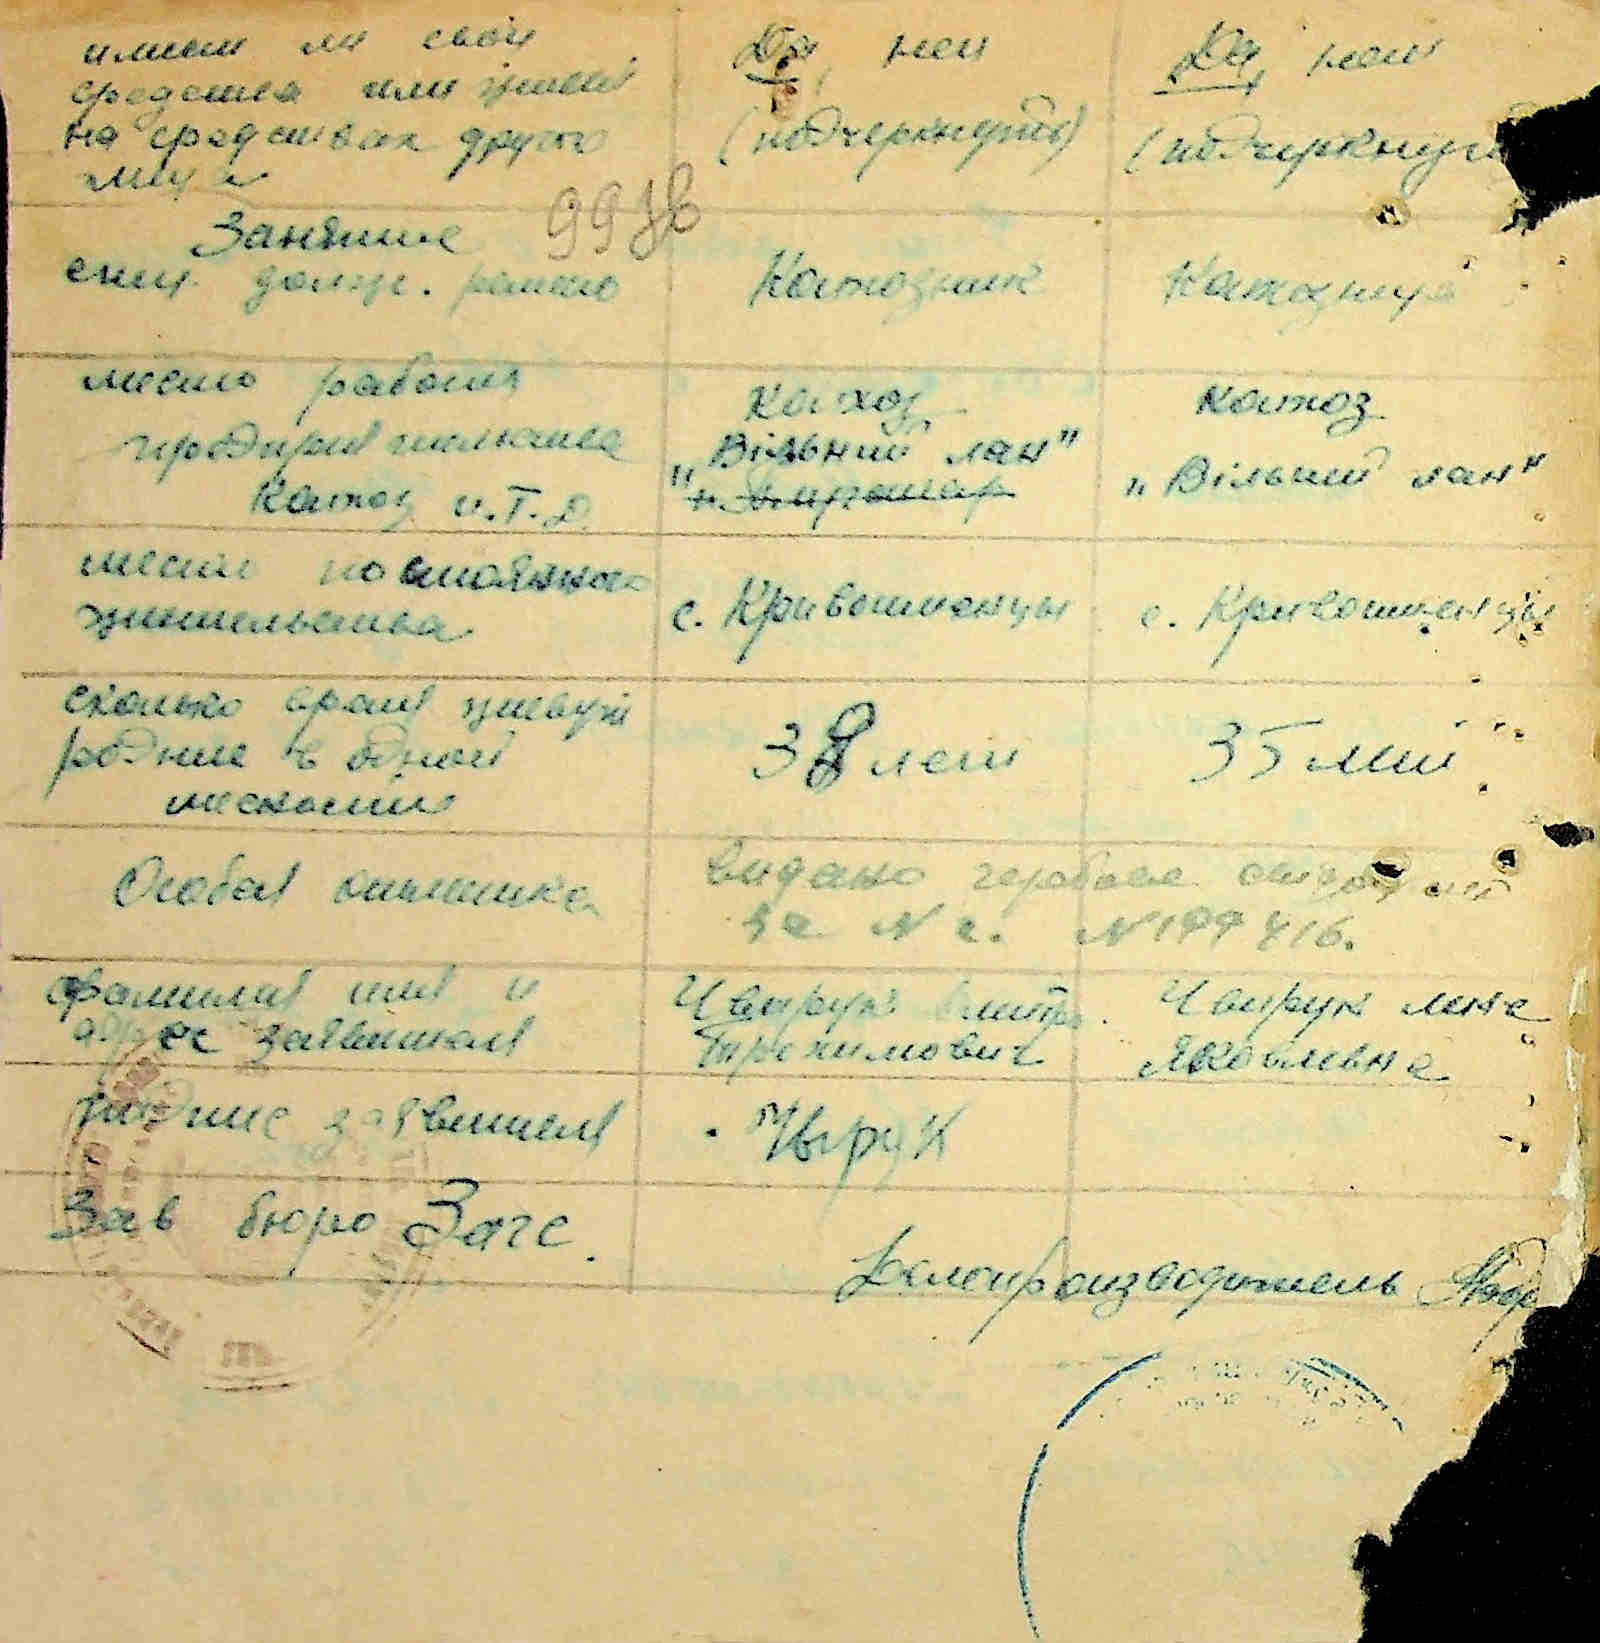 имеет ли свои
средства или живет
на средствах другого
лица
Да, нет
(подчеркнуть)
Да, нет
(подчеркнуть
99зв
Занятие
спец. долж. ремесло
Колхозник
Колхозница
место работы
предприят
Колхоз и.т.д.
Колхоз
"Вільний лан"
Колхоз
"Вільний лан"
место постоянного
жительства
с. Кривошиенцы
с. Кривошиенцы
сколько время живут
родние в одной
месности
38 лет
35 лет
Особая отметка
видано гербовое
за № 2. № 199416.
фамилия имя и
адрес заявителя
Чвирук
Трохимович
Чвирук
Яковлевна
подпис заявителя
Зав бюро Загс.
Делопроизводитель